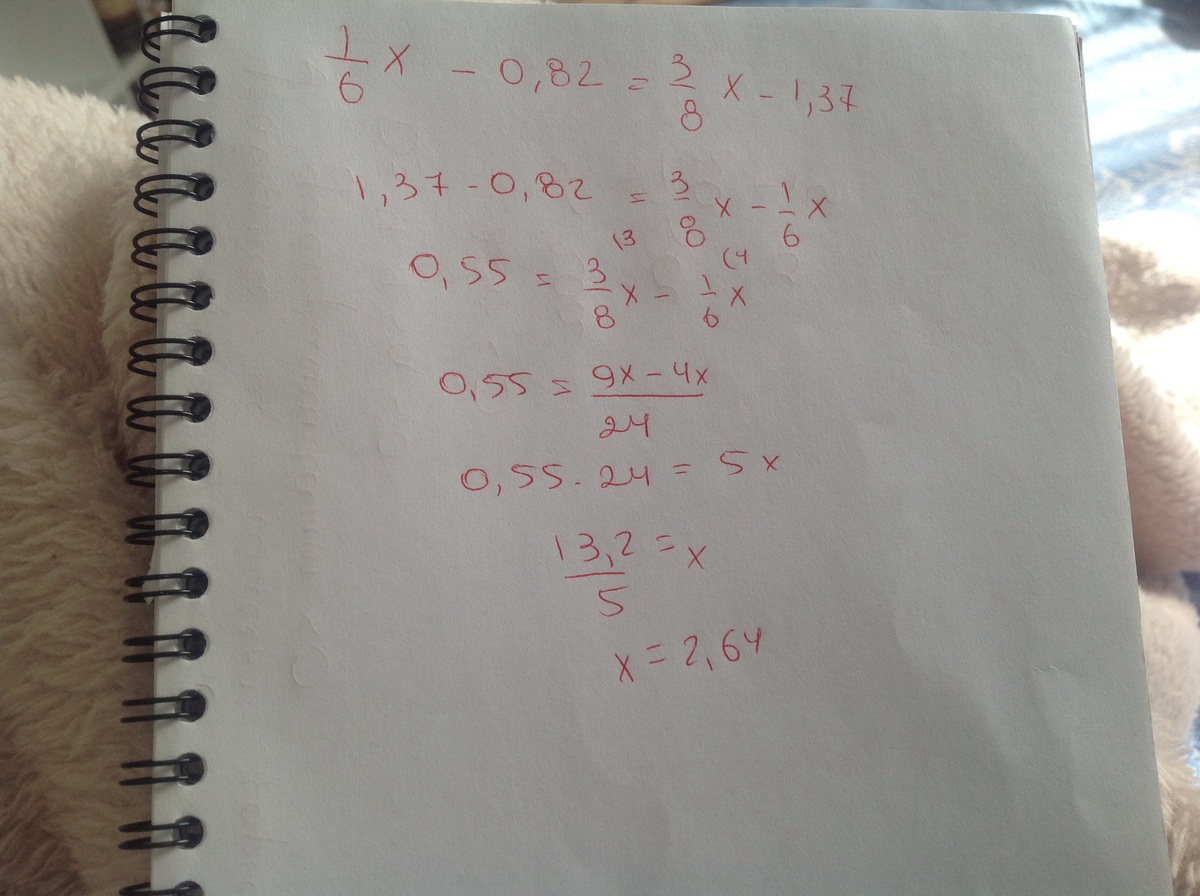 1/6 x - 0,82 = 3/8 x - 1,37
1,37 - 0,82 = 3/8 x - 1/6 x
(3 (4
0,55 = 3/8 x - 1/6 x
0,55 = 9x - 4x / 24
0,55 . 24 = 5x
13,2 / 5 = x
x = 2,64